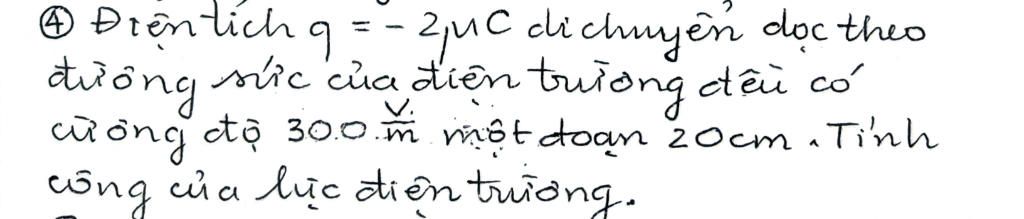 ④ Điện tích q = - 2μC di chuyển dọc theo
đường sức của điện trường đều có
cường độ 300 V/m một đoạn 20cm. Tính
công của lực điện trường.